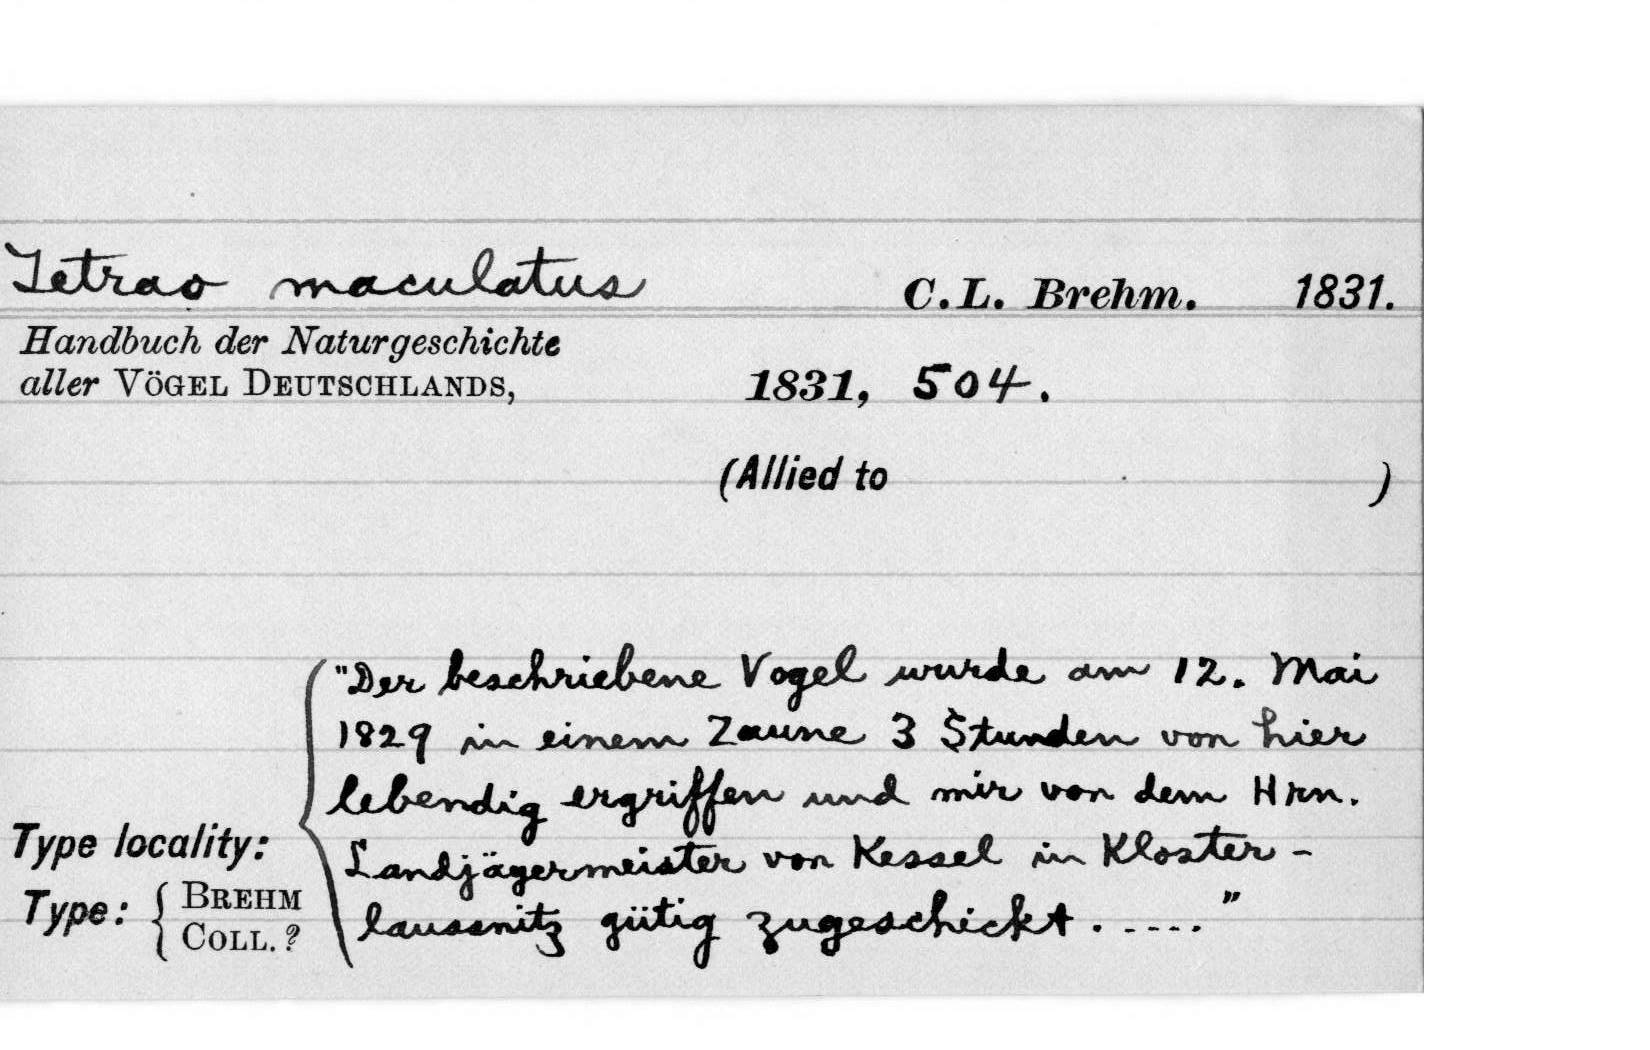 Tetrao maculatus C.L. Brehm. 1831.
Handbuch der Naturgeschichte
aller VÖGEL DEUTSCHLANDS, 1831, 504.
(Allied to )
"Der beschriebene Vogel wurde am 12. Mai
1829 in einem Zaune 3 Stunden von hier
lebendig ergriffen und mir von dem Hrn.
Landjägermeister von Kessel in Kloster-
laussnitz gütig zugeschickt. ....."
Type locality:
Type: { BREHM
COLL. ?